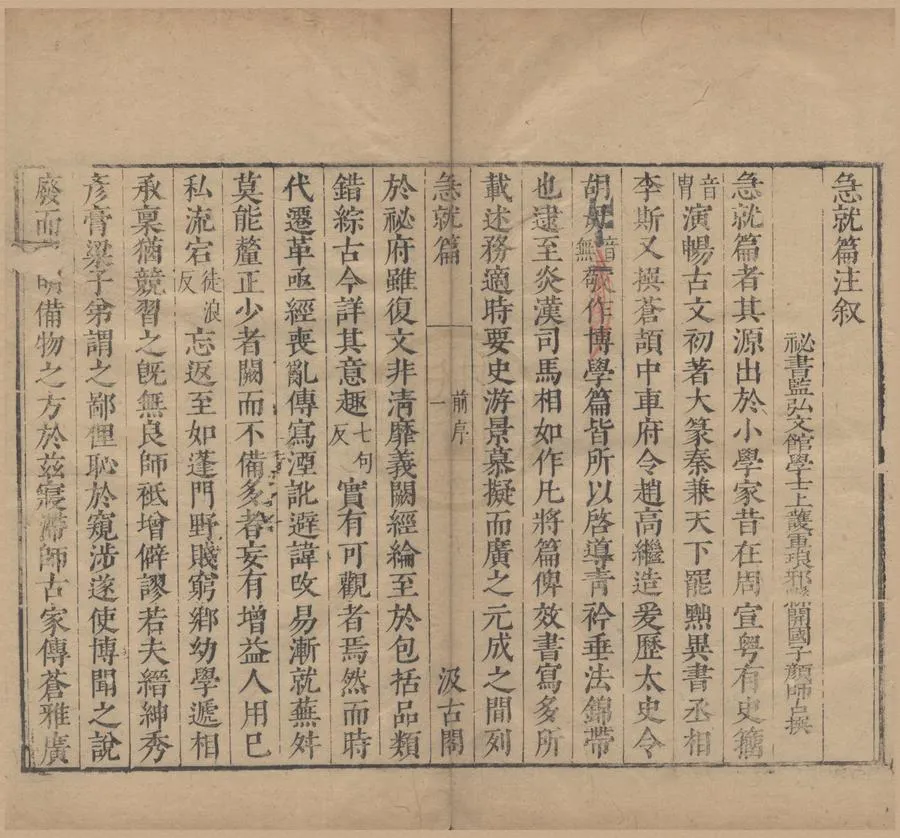 急就篇注叙
祕書監弘文館學士上護軍琅邪縣開國子顏師古撰
急就篇者其源出於小學家昔在周宣粤有史籒
音冑演暢古文初著大篆秦兼天下罷黜異書丞相
李斯又撰蒼頡中車府令趙高繼造爰歷太史令
胡母音無敬作博學篇皆所以啓導青衿垂法錦帶
也逮至炎漢司馬相如作凡將篇俾效書寫多所
載述務適時要史游景慕擬而廣之元成之間列
急就篇 前序 一 汲古閣
於祕府雖復文非清靡義闕經綸至於包括品類
錯綜古今詳其意趣七句反實有可觀者焉然而時
代遷革亟經喪亂傳寫湮訛避諱改易漸就蕪舛
莫能釐正少者闕而不備多者妄有增益人用已
私流宕徒浪反忘返至如蓬門野賤窮鄉幼學遞相
承稟猶競習之旣無良師秪增僻謬若夫縉紳秀
彥膏粱子弟謂之鄙俚恥於窺涉遂使博聞之說
廢而明備物之方於茲寖滯師古家傳蒼雅廣